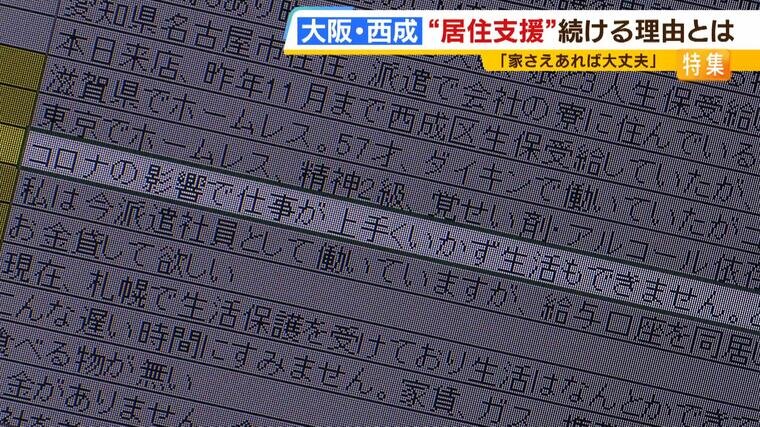 大阪・西成 “居住支援”続ける理由とは
「家さえあれば大丈夫」
特集
愛知県名古屋市在住。派遣で会社の寮に住んでいる
本日来店、昨年11月まで西成区生保受給していたが、
滋賀県でホームレス。57才、ダイキンで働いていたがコ
東京でホームレス、精神2級、覚せい剤・アルコール依存
コロナの影響で仕事が上手くいかず生活もできません。
私は今派遣社員として働いていますが、給与口座を同居
お金貸して欲しい
現在、札幌で生活保護を受けており生活はなんとかでき
こんな遅い時間にすみません。家賃、ガス、携帯
食べる物が無い
金がありません。